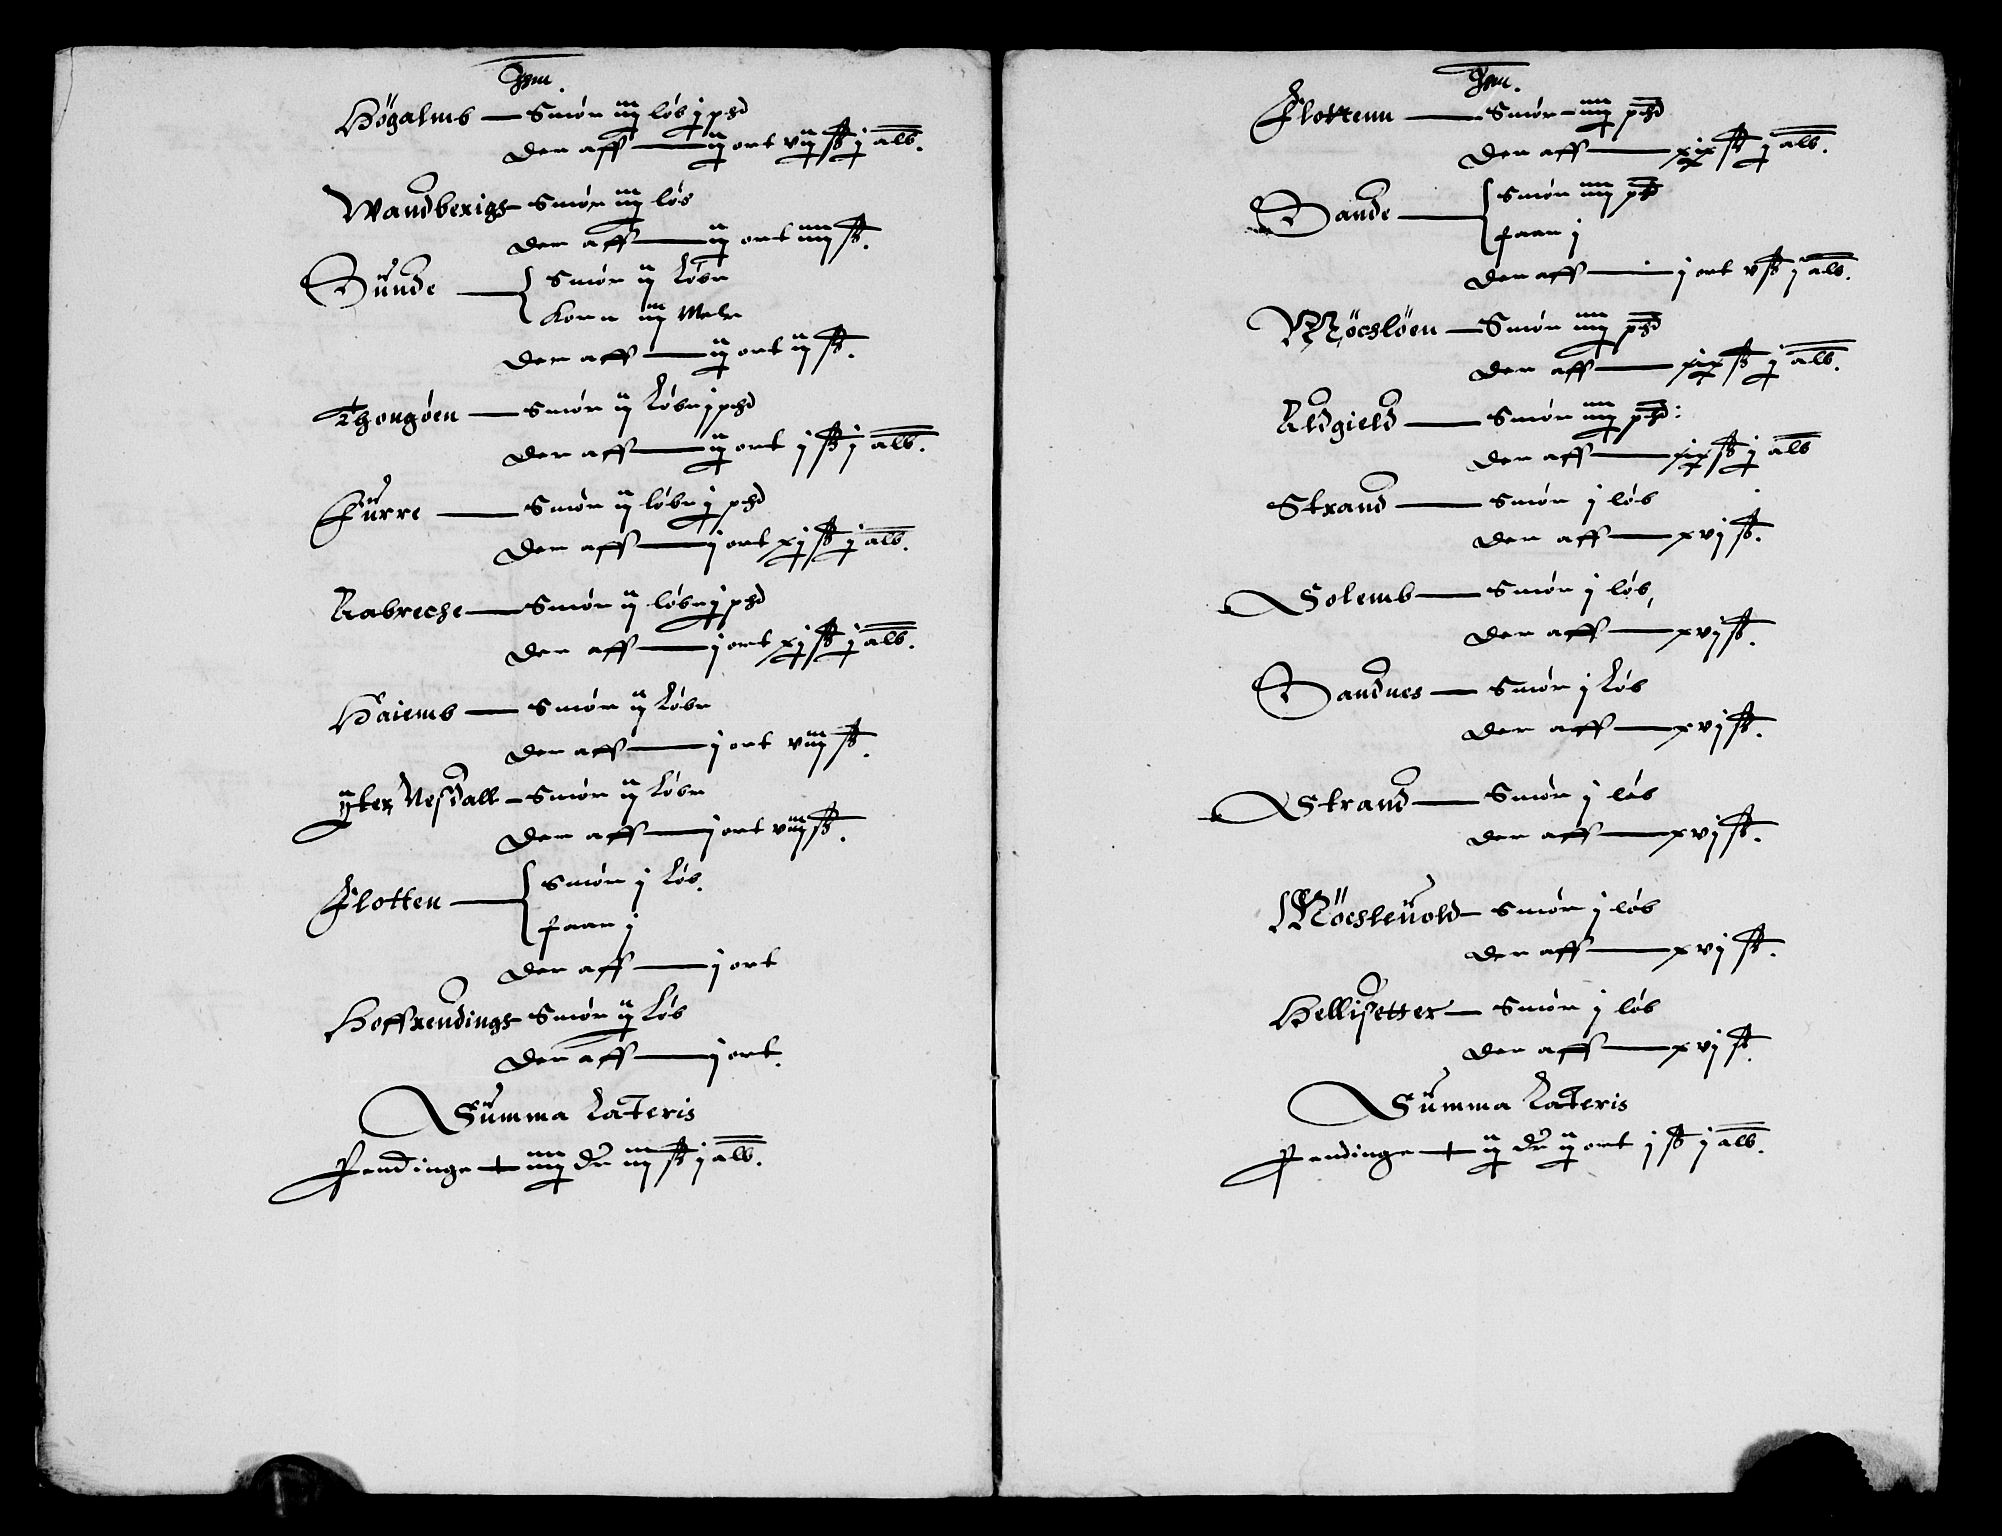 Item.
Högalmb — Smör iij löb j pd
Der aff — ij ort vij ß j alb.
Wandberigs Smör iij löb
Der aff — ij ort iiij ß.
Sünde — Smör ij Löbr
Korn iij Meler
Der aff — ij ort ij ß.
Thongöen — Smör ij Löbr j pd
Der aff — ij ort j ß j alb.
Fürre — Smör ij löbr j pd
Der aff — j ort xj ß j alb.
Aabreche — Smör ij löbr j pd
Der aff — j ort xj ß j alb.
Haiemb — Smör ij Löbr
Der aff — j ort viij ß.
ÿter Nesdall — Smör ij Löbr
Der aff — j ort viij ß.
Flotten — Smör j Löb.
faar j
Der aff — j ort
Hoffrendings Smör ij Löb
Der aff — j ort.
Summa Lateris
Pendinge — iiij dr iij ß j alb.
Item.
Flottenn — Smör iiij pd
Der aff — xix ß j alb.
Sande — Smör iiij pd
faar j
Der aff — j ort v ß j alb.
Möcslöen — Smör iiij pd
Der aff — xix ß j alb.
Aldgield — Smör iiij pd:
Der aff — xix ß j alb
Strand — Smör j löb
Der aff — xvj ß.
Solemb — Smör j löb,
Der aff — xvj ß.
Sandnes — Smör j Löb
Der aff — xvj ß.
Strand — Smör j löb
Der aff — xvj ß.
Möcsleuold — Smör j löb
Der aff — xvj ß.
Hellisetter — Smör j löb
Der aff — xvj ß.
Summa Lateris
Pendinge — ij dr ij ort j ß j alb.